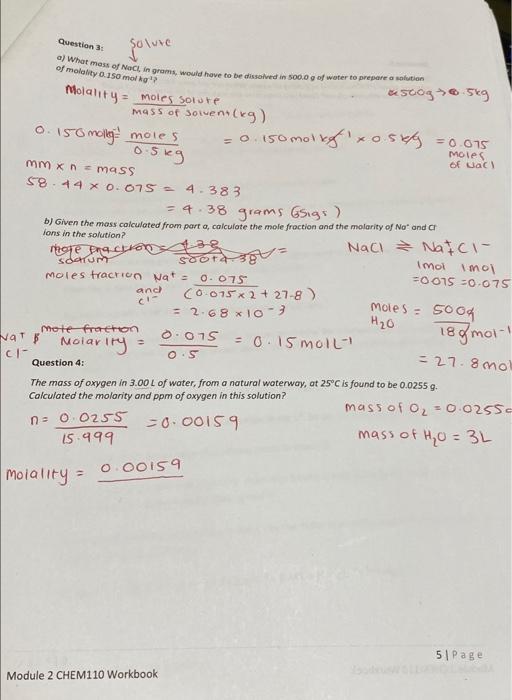 solute
Question 3:
a) What mass of NaCl, in grams, would have to be dissolved in 500.0 g of water to prepare a solution
of molality 0.150 mol kg⁻¹?
Molality = moles solute
mass of solvent (kg)
500g → 0.5kg
0.150 molkg⁻¹ moles
0.5 kg
= 0.150 mol kg⁻¹ × 0.5 kg = 0.075
moles
of NaCl
mm × n = mass
58.44 × 0.075 = 4.383
= 4.38 grams (3sigs)
b) Given the mass calculated from part a, calculate the mole fraction and the molarity of Na⁺ and Cl⁻
ions in the solution?
mole fraction = 4.38
sodium 500+4.38 =
NaCl ⇌ Na⁺ + Cl⁻
1mol 1mol
=0.075 =0.075
moles fraction Na⁺ = 0.075
and
Cl⁻ (0.075 × 2 + 27.8)
= 2.68 × 10⁻³
moles = 500g
H₂O 18gmol⁻¹
= 27.8 mol
mole fraction
Na⁺ & Cl⁻ Molarity = 0.075 = 0.15 molL⁻¹
0.5
Question 4:
The mass of oxygen in 3.00 L of water, from a natural waterway, at 25°C is found to be 0.0255 g.
Calculated the molarity and ppm of oxygen in this solution?
n = 0.0255 = 0.00159
15.999
mass of O₂ = 0.0255g
mass of H₂O = 3L
molality = 0.00159
5 | Page
Module 2 CHEM110 Workbook